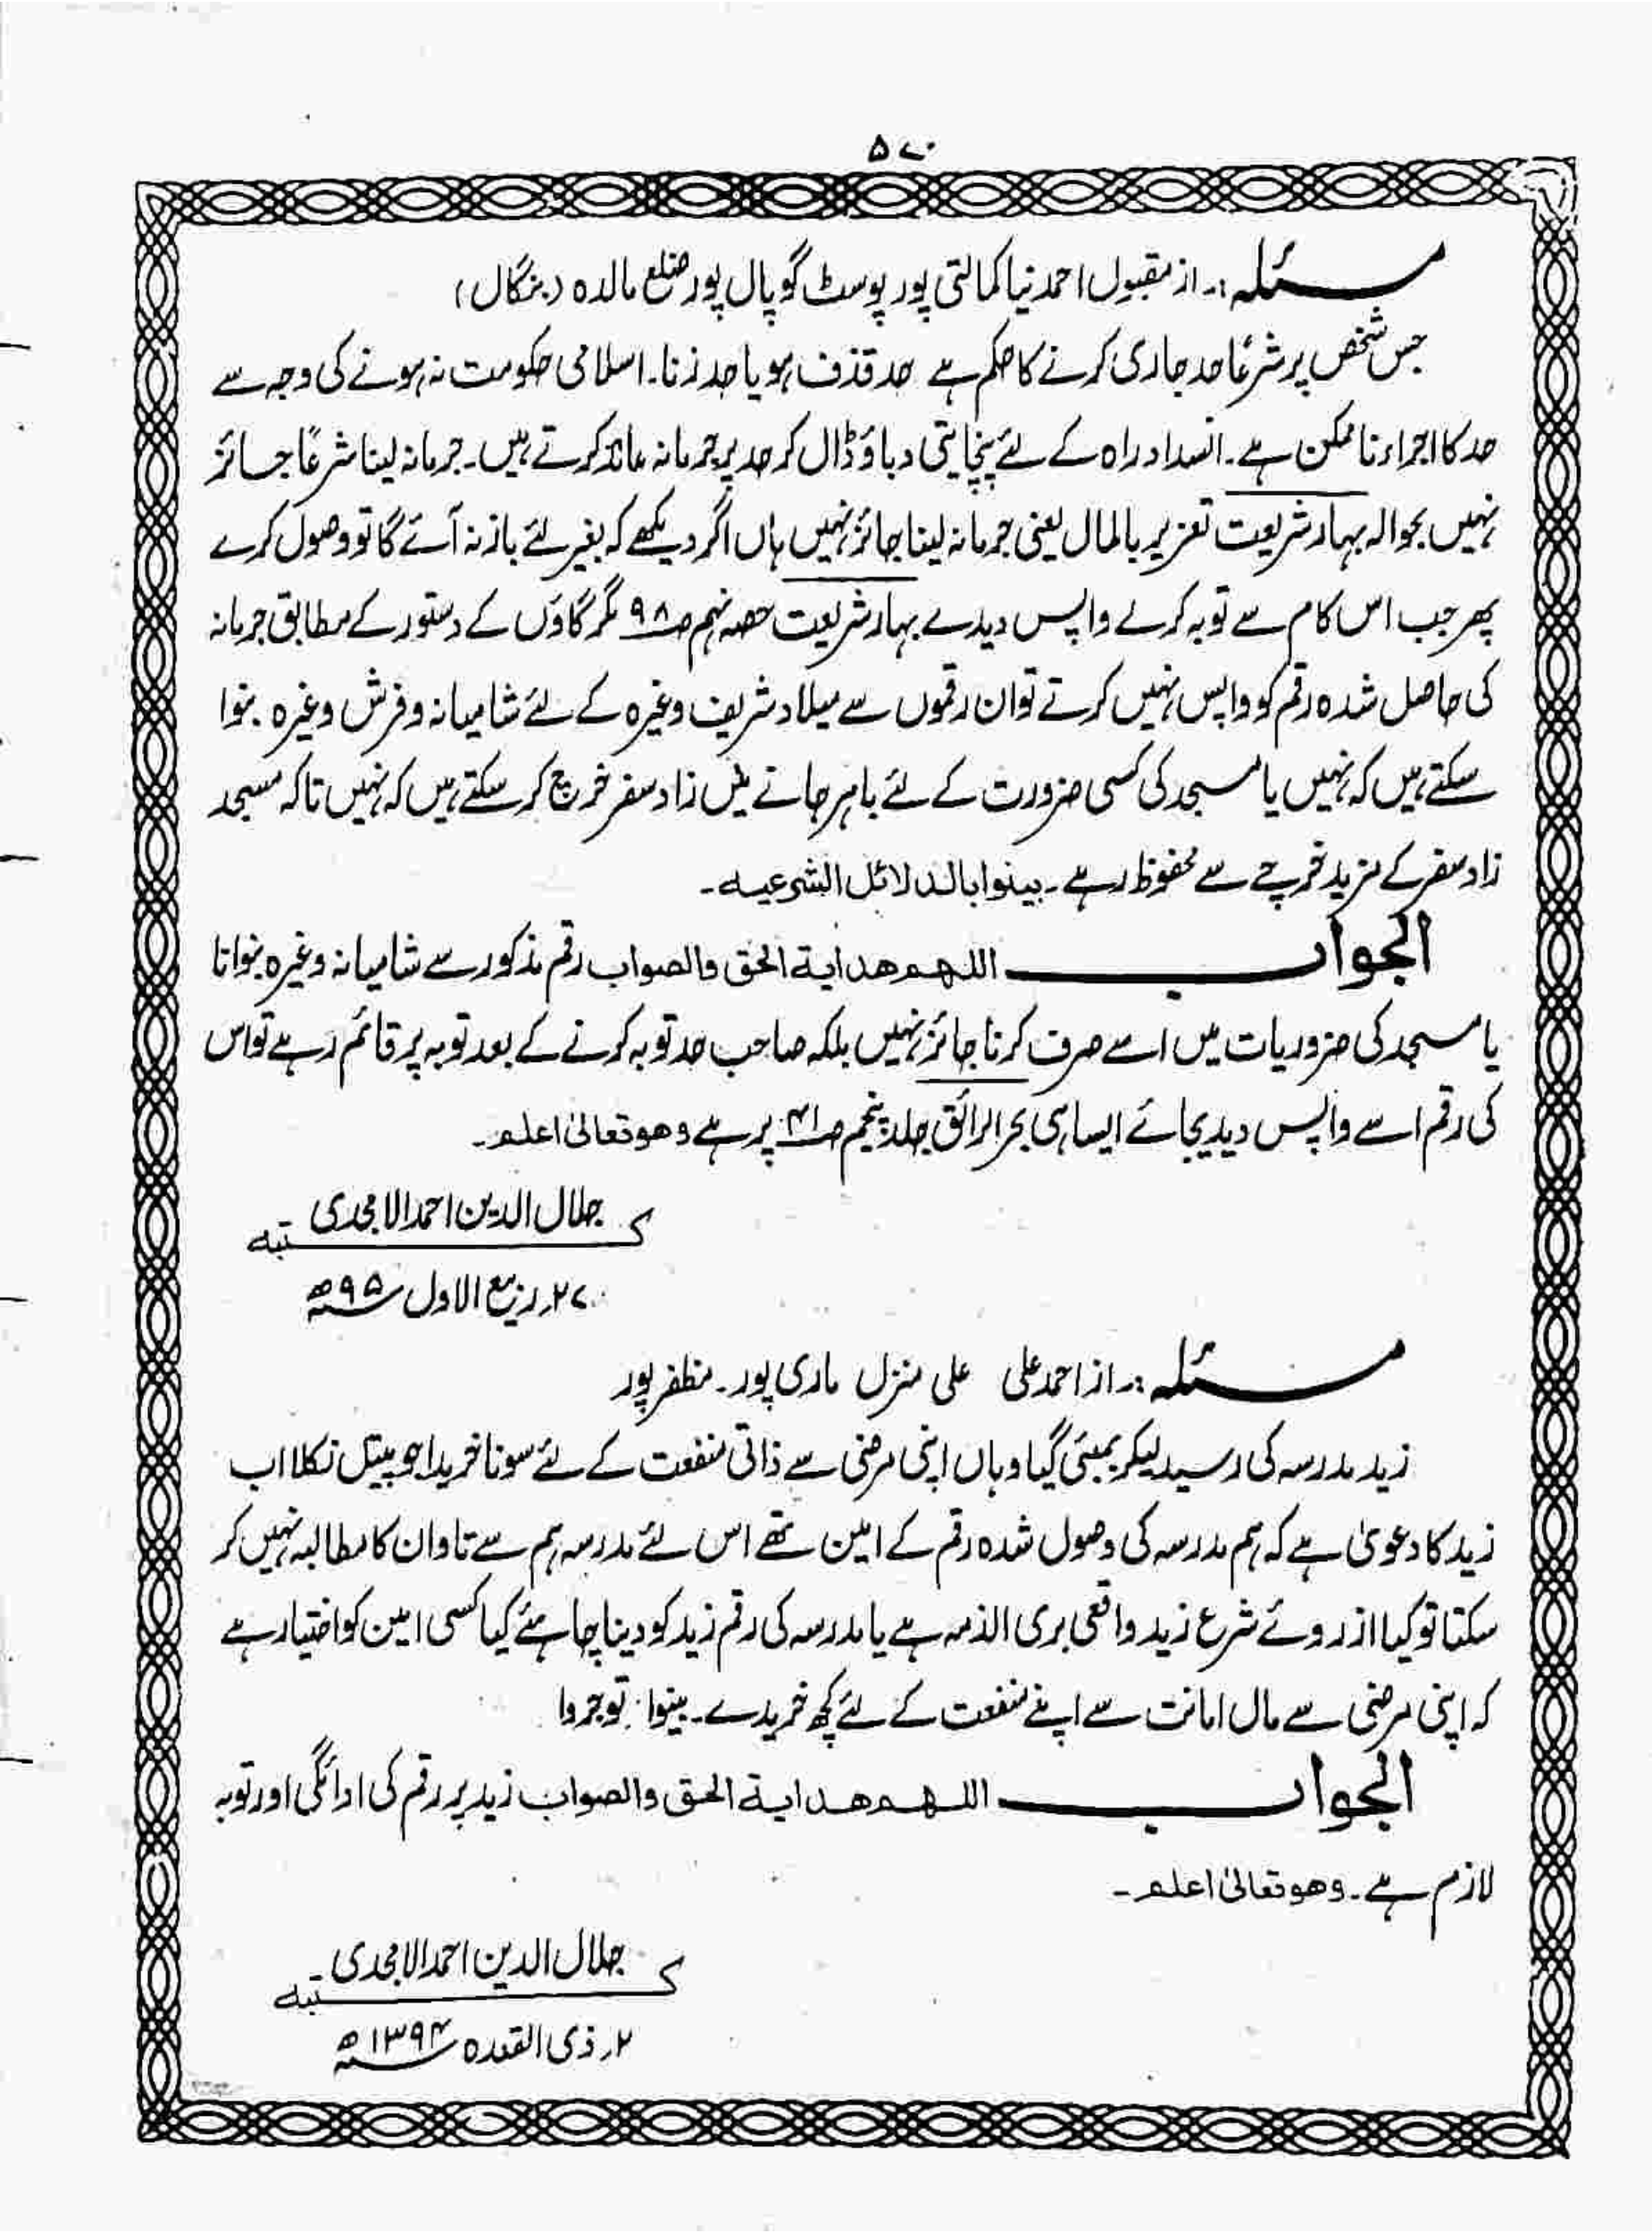 ۵۷۰
مسئلہ:۔ از مقبول احمد نیا کمالتی پور پوسٹ گوپال پور ضلع مالدہ (بنگال)
جس شخص پر شرعًا حد جاری کرنے کا حکم ہے حد قذف ہو یا حد زنا۔ اسلامی حکومت نہ ہونے کی وجہ سے
حد کا اجراء ناممکن ہے۔ انسداد راہ کے لئے پنچایتی دباؤ ڈال کر حد پر جرمانہ عائد کرتے ہیں۔ جرمانہ لینا شرعًا جائز
نہیں بحوالہ بہار شریعت تعزیر بالمال یعنی جرمانہ لینا جائز نہیں ہاں اگر دیکھے کہ بغیر لئے باز نہ آئے گا تو وصول کرے
پھر جب اس کام سے توبہ کرلے واپس دیدے بہار شریعت حصہ نہم صـ۹۸ مگر گاؤں کے دستور کے مطابق جرمانہ
کی حاصل شدہ رقم کو واپس نہیں کرتے تو ان رقموں سے میلاد شریف وغیرہ کے لئے شامیانہ و فرش وغیرہ بنوا
سکتے ہیں کہ نہیں یا مسجد کی کسی ضرورت کے لئے باہر جانے میں زاد سفر خرچ کر سکتے ہیں کہ نہیں تاکہ مسجد
زاد سفر کے مزید خرچے سے محفوظ رہے۔ بینوا بالدلائل الشرعیہ۔
الجواب اللہم ھدایة الحق والصواب رقم مذکور سے شامیانہ وغیرہ بنوانا
یا مسجد کی ضروریات میں اسے صرف کرنا جائز نہیں بلکہ صاحب حد توبہ کرنے کے بعد توبہ پر قائم رہے تو اس
کی رقم اسے واپس دیدیجائے ایسا ہی بحر الرائق جلد پنجم صـ۴۱ پر ہے وھو تعالیٰ اعلم۔
کتبہ جلال الدین احمد الامجدی
۲۷؍ ربیع الاول ۹۵ھ
مسئلہ:۔ از احمد علی علی منزل ماری پور۔ مظفرپور
زید مدرسہ کی رسید لیکر بمبئی گیا وہاں اپنی مرضی سے ذاتی منفعت کے لئے سونا خریدا جو پیتل نکلا اب
زید کا دعویٰ ہے کہ ہم مدرسہ کی وصول شدہ رقم کے امین تھے اس لئے مدرسہ ہم سے تاوان کا مطالبہ نہیں کر
سکتا تو کیا از روئے شرع زید واقعی بری الذمہ ہے یا مدرسہ کی رقم زید کو دینا چاہئے کیا کسی امین کو اختیار ہے
کہ اپنی مرضی سے مال امانت سے اپنے منفعت کے لئے کچھ خریدے۔ بینوا توجروا
الجواب اللہم ھدایة الحق والصواب زید پر رقم کی ادائگی اور توبہ
لازم ہے۔ وھو تعالیٰ اعلم۔
کتبہ جلال الدین احمد الامجدی
۲؍ ذی القعدہ ۱۳۹۴ھ